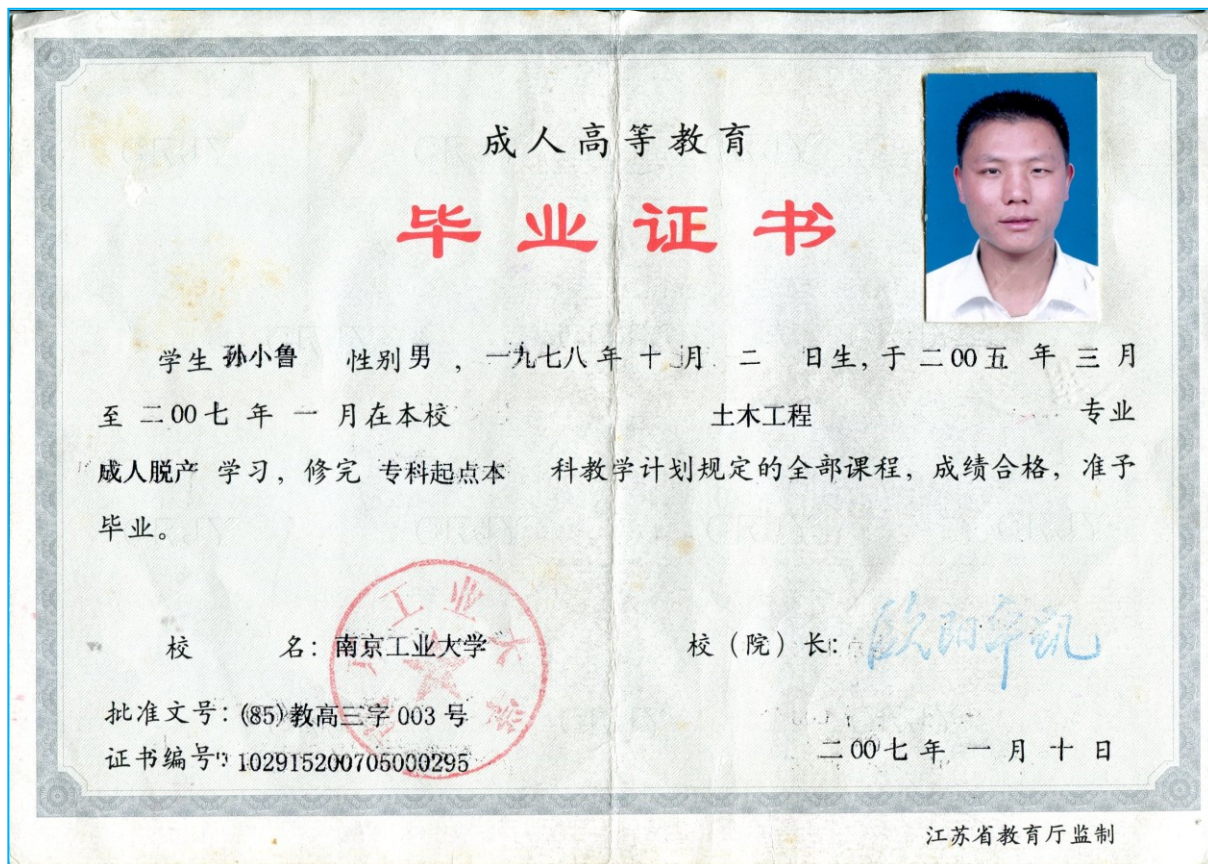 成人高等教育
毕业证书
学生 孙小鲁 性别 男 , 一九七八 年 十 月 二 日生, 于 二00五 年 三 月
至 二00七 年 一 月在本校 土木工程 专业
成人脱产 学习, 修完 专科起点本 科教学计划规定的全部课程, 成绩合格, 准予
毕业。
校 名: 南京工业大学 校(院)长: 欧阳平凯
批准文号: (85)教高三字 003 号
证书编号: 102915200705000295
二00七 年 一 月 十 日
江苏省教育厅监制